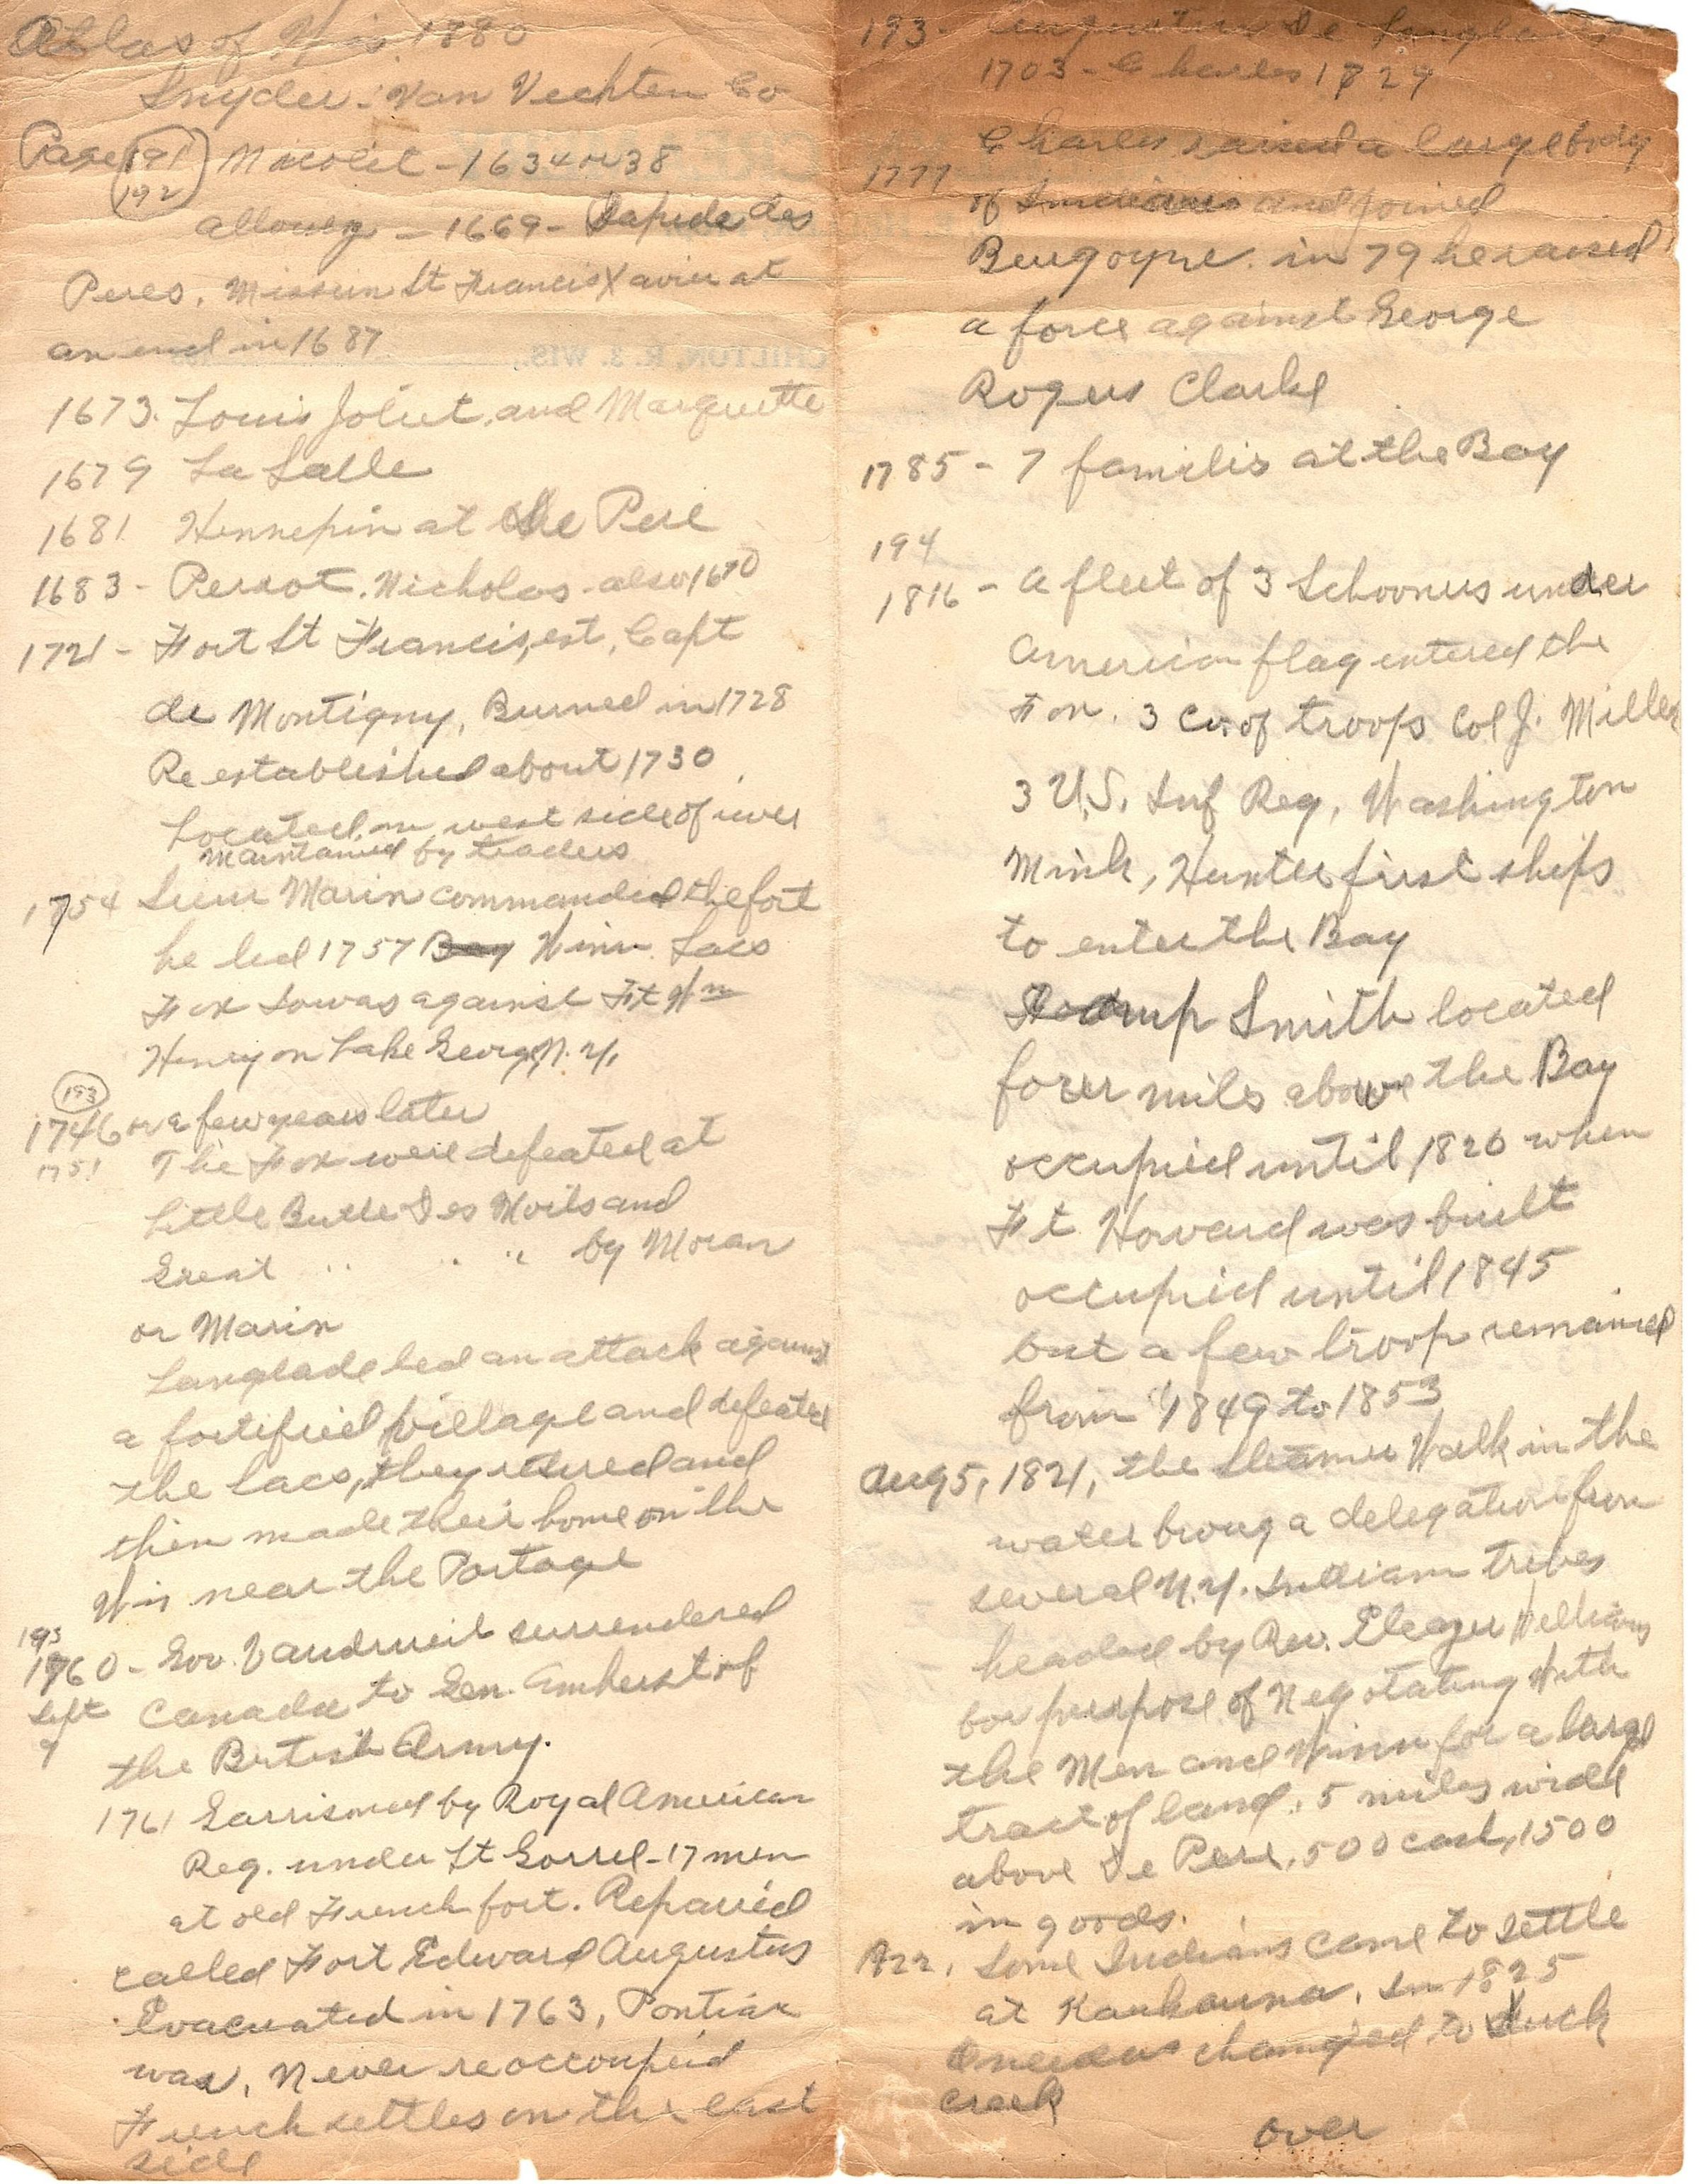 Atlas of Wis 1880
Snyder. Van Vechten Co
Page 191 Nicolet - 1634 or 38
192
Allouez - 1669 - Rapide des
Peres. Mission St Francis Xavier at
an end in 1687
CHILTON, R. 3, WIS.,
1673. Louis Joliet and Marquette
1679 La Salle
1681 Hennepin at De Pere
1683 - Perrot. Nicholas - also 1670
1721 - Fort St Francis, est, Capt
de Montigny, Burned in 1728
Re established about 1730
Located on west side of river
Maintained by traders
1754 Sieur Marin commanded the fort
he led 1757 Bay Winn. Sacs
Fox Iowas against Ft Wm
Henry on Lake George N.Y.
193
1746 or a few years later
1751 The Fox were defeated at
Little Butte Des Morts and
Great " " " by Moran
or Marin
Langlade led an attack against
a fortified village and defeated
the Sacs, they retired and
then made their home on the
Wis near the Portage
193
1760 - Gov. Vaudrueil surrendered
Sept Canada to Gen. Amherst of
9 the British Army.
1761 Garrisoned by Royal American
Reg. under Lt Gorrel - 17 men
at old French fort. Repaired
called Fort Edward Augustus
Evacuated in 1763, Pontiac
war, Never reoccoupied
French settles on the east
side
193 - Augustin De Langlade
1703 - Charles 1729
Charles raised a large body
1777
of Indians and joined
Burgoyne. in 79 he raised
a force against George
Rogers Clarke
1785 - 7 familis at the Bay
194
1816 - A fleet of 3 Schooners under
American flag entered the
Fox. 3 Co. of troops Col J. Miller
3 U.S. Inf Reg, Washington
Mink, Hunter first ships
to enter the Bay
Camp Smith located
four miles above the Bay
occupied until 1820 when
Ft Howard was built
occupied until 1845
but a few troop remained
from 1849 to 1853
Aug 5, 1821, the steamer Walk in the
water broug a delegation from
several N.Y. Indian tribes
headed by Rev. Eleazer Williams
for purpose of Negotating with
the Men and Winn for a large
tract of land. 5 miles wide
above De Pere, 500 cash, 1500
in goods.
Some Indians came to settle
at Kaukauna. In 1825
Oneidas changed to Duck
creek
over